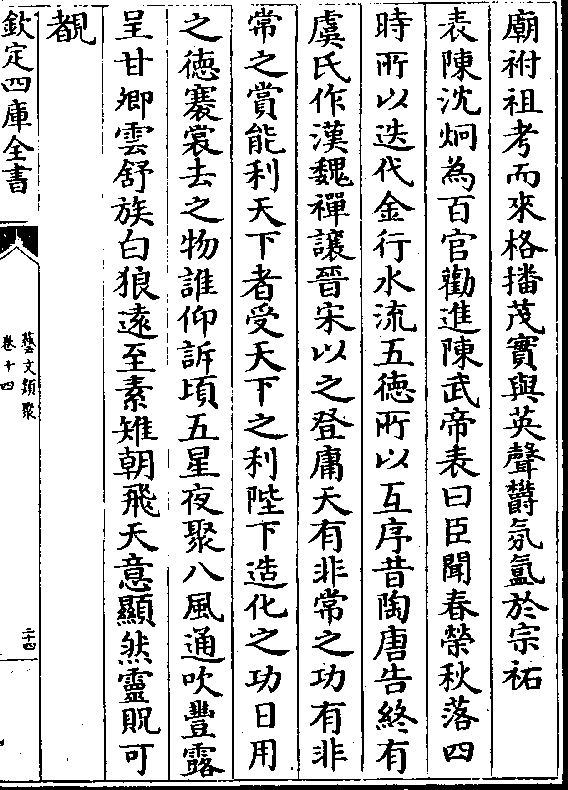 廟祔祖考而來格播茂實與英聲欝氛氳於宗祏
表陳沈炯為百官勸進陳武帝表曰臣聞春榮秋落四
時所以迭代金行水流五德所以互序昔陶唐告終有
虞氏作漢魏禪讓晉宋以之登庸天有非常之功有非
常之賞能利天下者受天下之利陛下造化之功日用
之徳褰裳去之物誰仰訴頃五星夜聚八風通吹豐露
呈甘卿雲舒族白狼逺至素雉朝飛天意顯然靈貺可
覩
欽定四庫全書
藝文類聚
卷十四
二十四